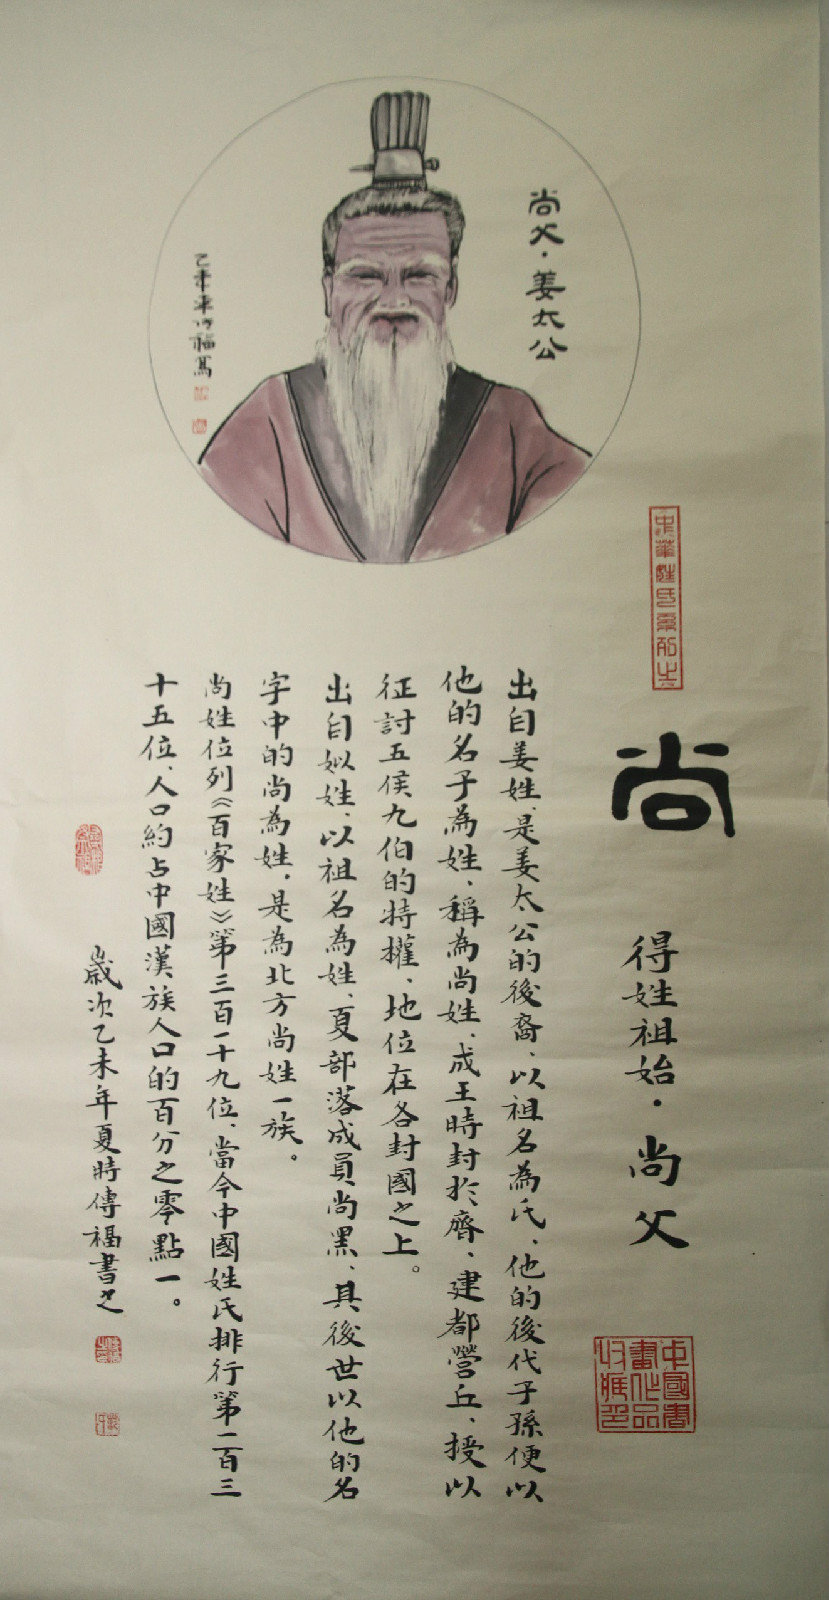 尚父·姜太公
中華姓氏系列之
尚
得姓祖始·尚父
中國書畫作品收藏印
出自姜姓、是姜太公的後裔、以祖名為氏、他的後代子孫便以
他的名子為姓、稱為尚姓、成王時封於齊、建都營丘、授以
征討五侯九伯的特權、地位在各封國之上。
出自姒姓、以祖名為姓、夏部落成員尚黑、其後世以他的名
字中的尚為姓、是為北方尚姓一族。
尚姓位列《百家姓》第三百一十九位、當今中國姓氏排行第一百三
十五位、人口約占中國漢族人口的百分之零點一。
歲次乙未年夏時傳福書之